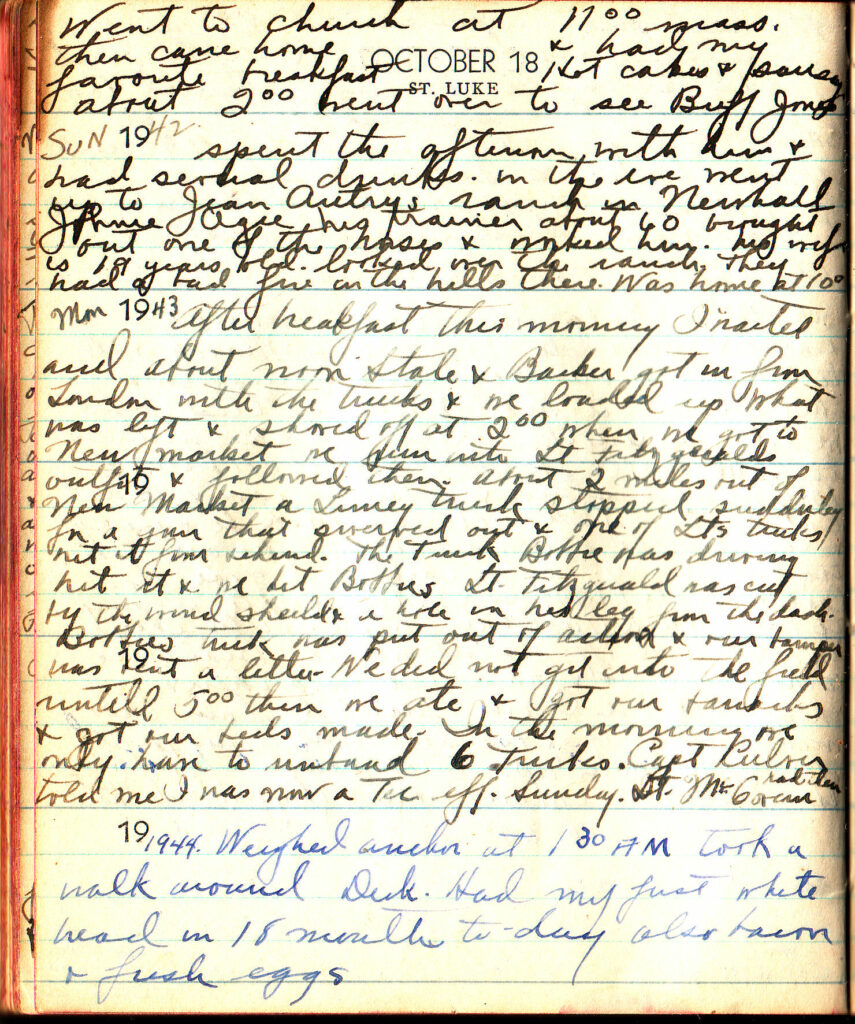 Went to church at 11⁰⁰ mass.
then came home & had my
OCTOBER 18
favorite breakfast Hot cakes & sausage
ST. LUKE
about 2⁰⁰ went over to see Buff Jones
SUN 1942
spent the afternoon with him &
had several drinks. in the eve went
up to Jean Autrys ranch in Newhall
Johnnie his trainer about 60 brought
out one of the horses & worked him. his wife
is 18 years old. looked over the ranch. They
had a bad fire in the hills there. Was home at 10⁰⁰
Mon 1943 After breakfast this morning I
and about noon Stale & Barker got in from
London with the trucks & we loaded up what
was left & shoved off at 2⁰⁰ when we got to
New market we run into Lt Fitzgeralds
outfit & followed them. about 2 miles out of
19
New Market a Limey truck stopped suddenley
for a that swerved out & one of Lts trucks
hit it from behind. The Truck Bobbie was driving
hit it & we hit Bobbies Lt. Fitzgerald was cut
by the wind sheild & a hole in his leg from the dash.
Bobbies truck was put out of action & our bumper
19
was bent a little. We did not get into the field
untill 5⁰⁰ then we ate & got our barracks
& got our beds made. In the morning we
only have to unload 6 Trucks. Capt Culver
told me I was now a Tec eff. Sunday. Lt. Mc
1944. Weighed anchor at 1³⁰ AM took a
walk around Deck. Had my first white
bread in 18 months to-day also bacon
& fresh eggs